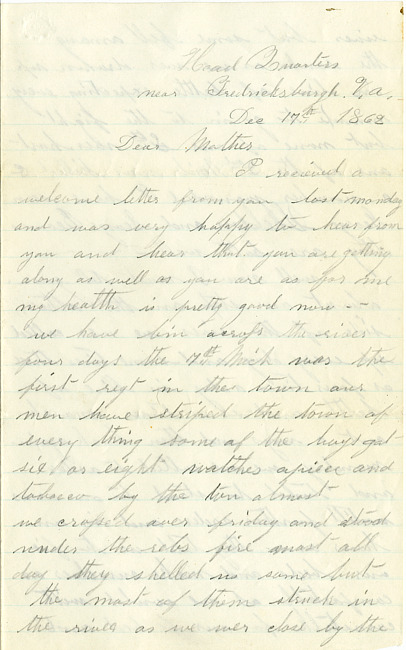 Head Quarters
near Fredricksburgh. Va.
Dec 17th 1862
Dear Mother
I recieved a
welcome letter from you last monday
and was very happy to hear from
you and hear that you are getting
along as well as you are as for me
my health is pretty good now --
we have bin across the river
four days the 7th Mich was the
first regt in the town our
men have striped the town of
every thing some of the boys got
six or eight watches apiece and
tobacco by the tun almost
we crossed over friday and stood
under the rebs fire most all
day they shelled us some but
the most of them struck in
the river as we wer close by the